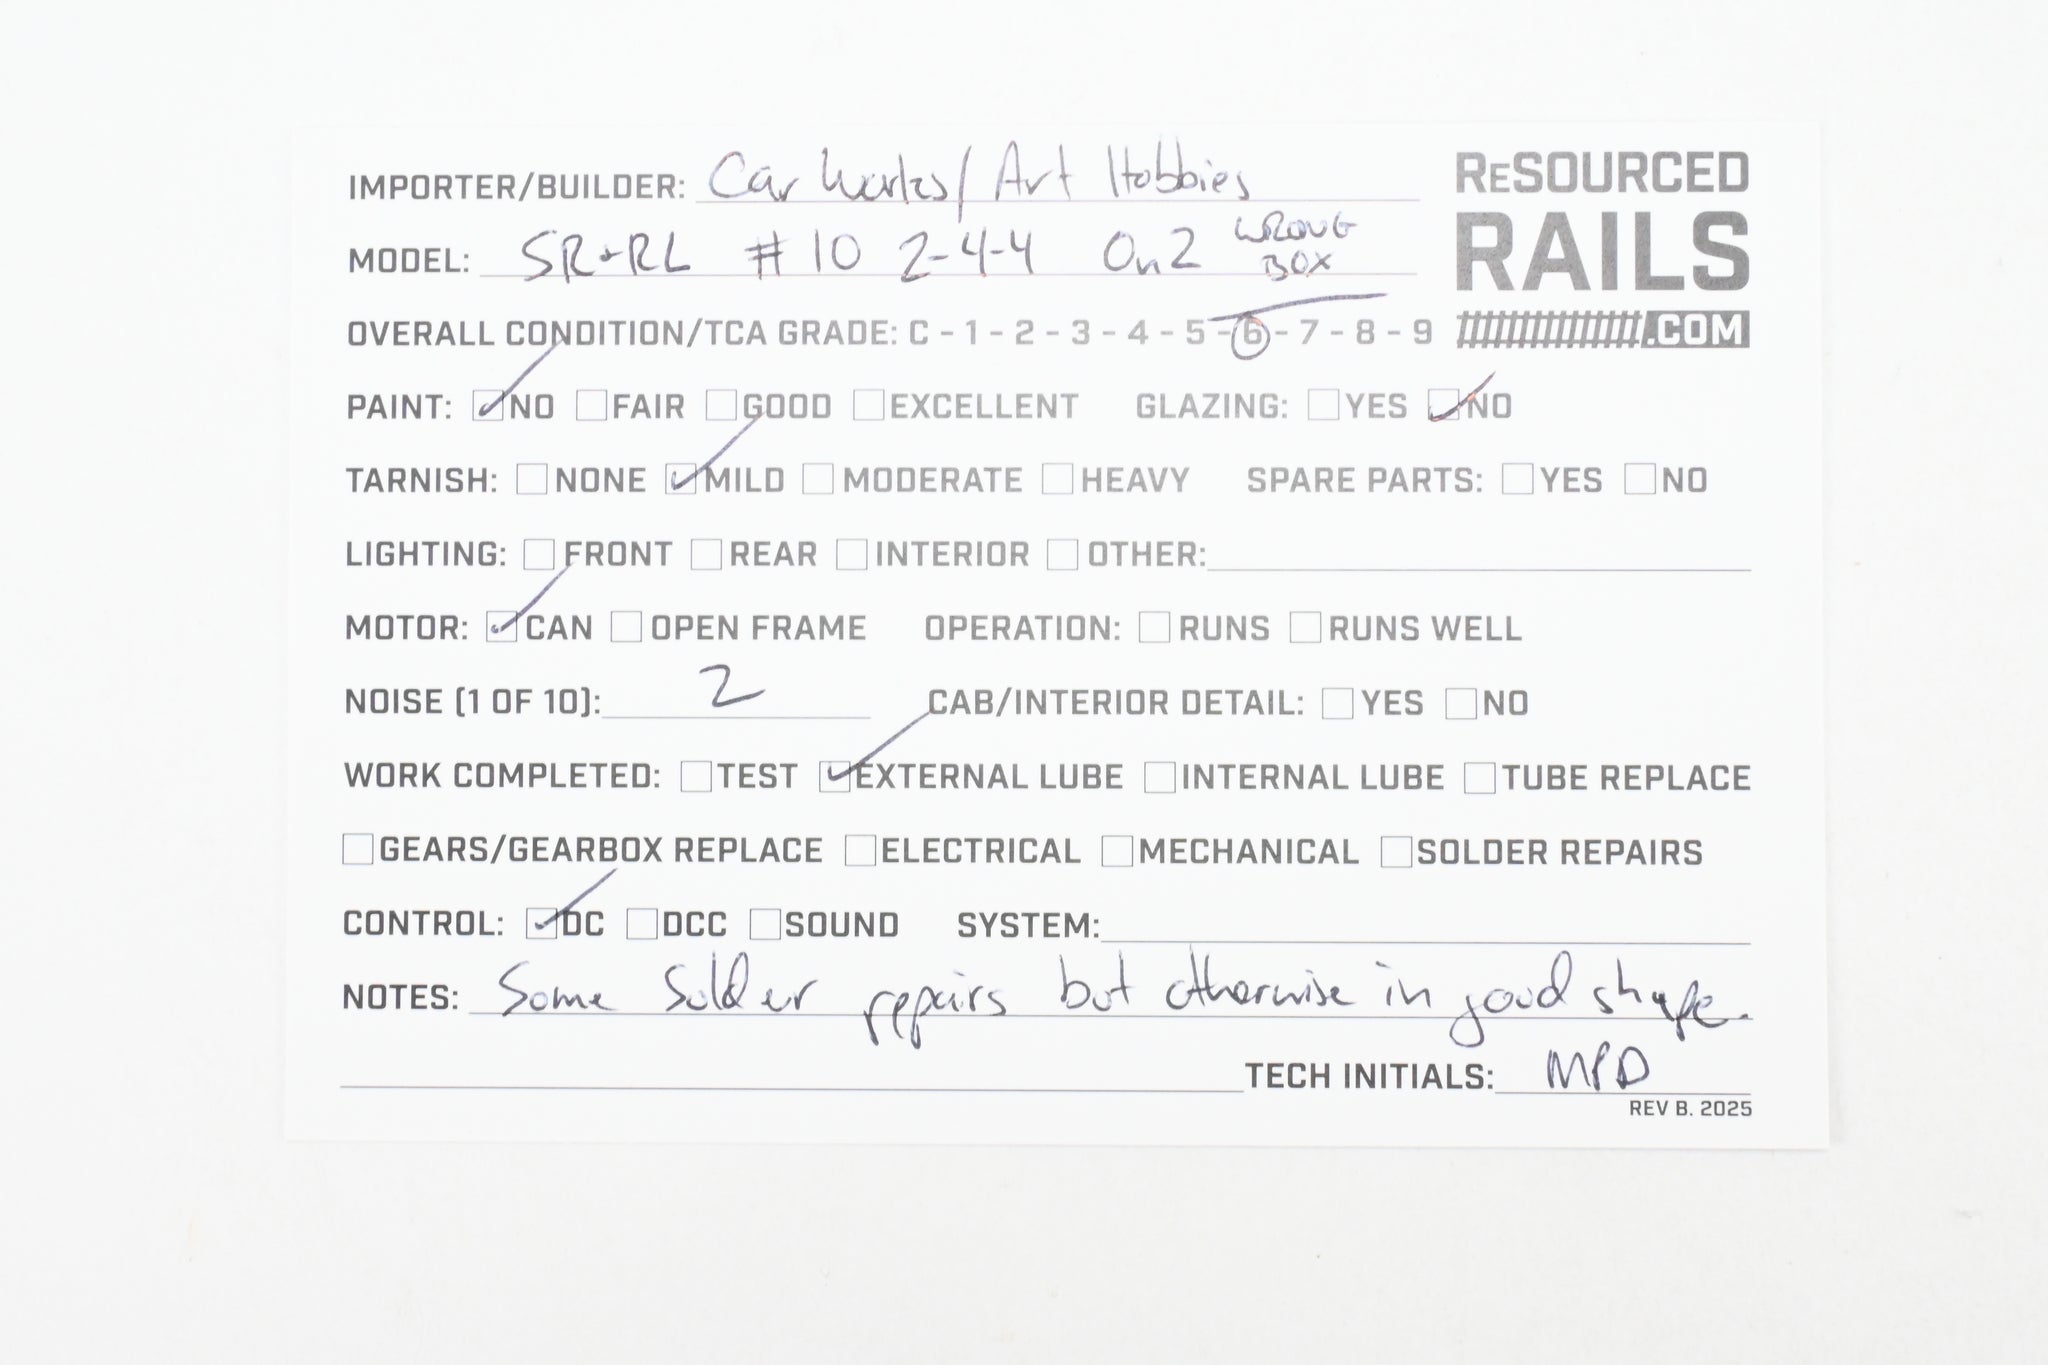 IMPORTER/BUILDER: Car Works/Art Hobbies
ReSOURCED
RAILS
.COM
MODEL: SR+RL #10 2-4-4 On2 WRONG BOX
OVERALL CONDITION/TCA GRADE: C - 1 - 2 - 3 - 4 - 5 - 6 - 7 - 8 - 9
PAINT: NO FAIR GOOD EXCELLENT GLAZING: YES NO
TARNISH: NONE MILD MODERATE HEAVY SPARE PARTS: YES NO
LIGHTING: FRONT REAR INTERIOR OTHER:
MOTOR: CAN OPEN FRAME OPERATION: RUNS RUNS WELL
NOISE (1 OF 10): 2 CAB/INTERIOR DETAIL: YES NO
WORK COMPLETED: TEST EXTERNAL LUBE INTERNAL LUBE TUBE REPLACE
GEARS/GEARBOX REPLACE ELECTRICAL MECHANICAL SOLDER REPAIRS
CONTROL: DC DCC SOUND SYSTEM:
NOTES: Some Solder repairs but otherwise in good shape.
TECH INITIALS: MPD
REV B. 2025